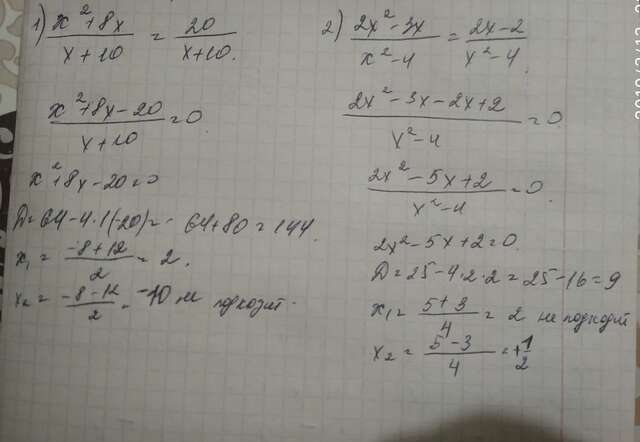 1) x²+8x / x+10 = 20 / x+10.
x²+8x-20 / x+10 = 0.
x²+8x-20=0
D=64-4·1(-20)=- 64+80=144.
x₁ = -8+12 / 2 = 2.
x₂ = -8-12 / 2 = -10 не подходит.
2) 2x²-3x / x²-4 = 2x-2 / x²-4.
2x²-3x-2x+2 / x²-4 = 0.
2x²-5x+2 / x²-4 = 0.
2x²-5x+2=0.
D=25-4·2·2=25-16=9
x₁= 5+3 / 4 = 2 не подходит
x₂ = 5-3 / 4 = +1/2